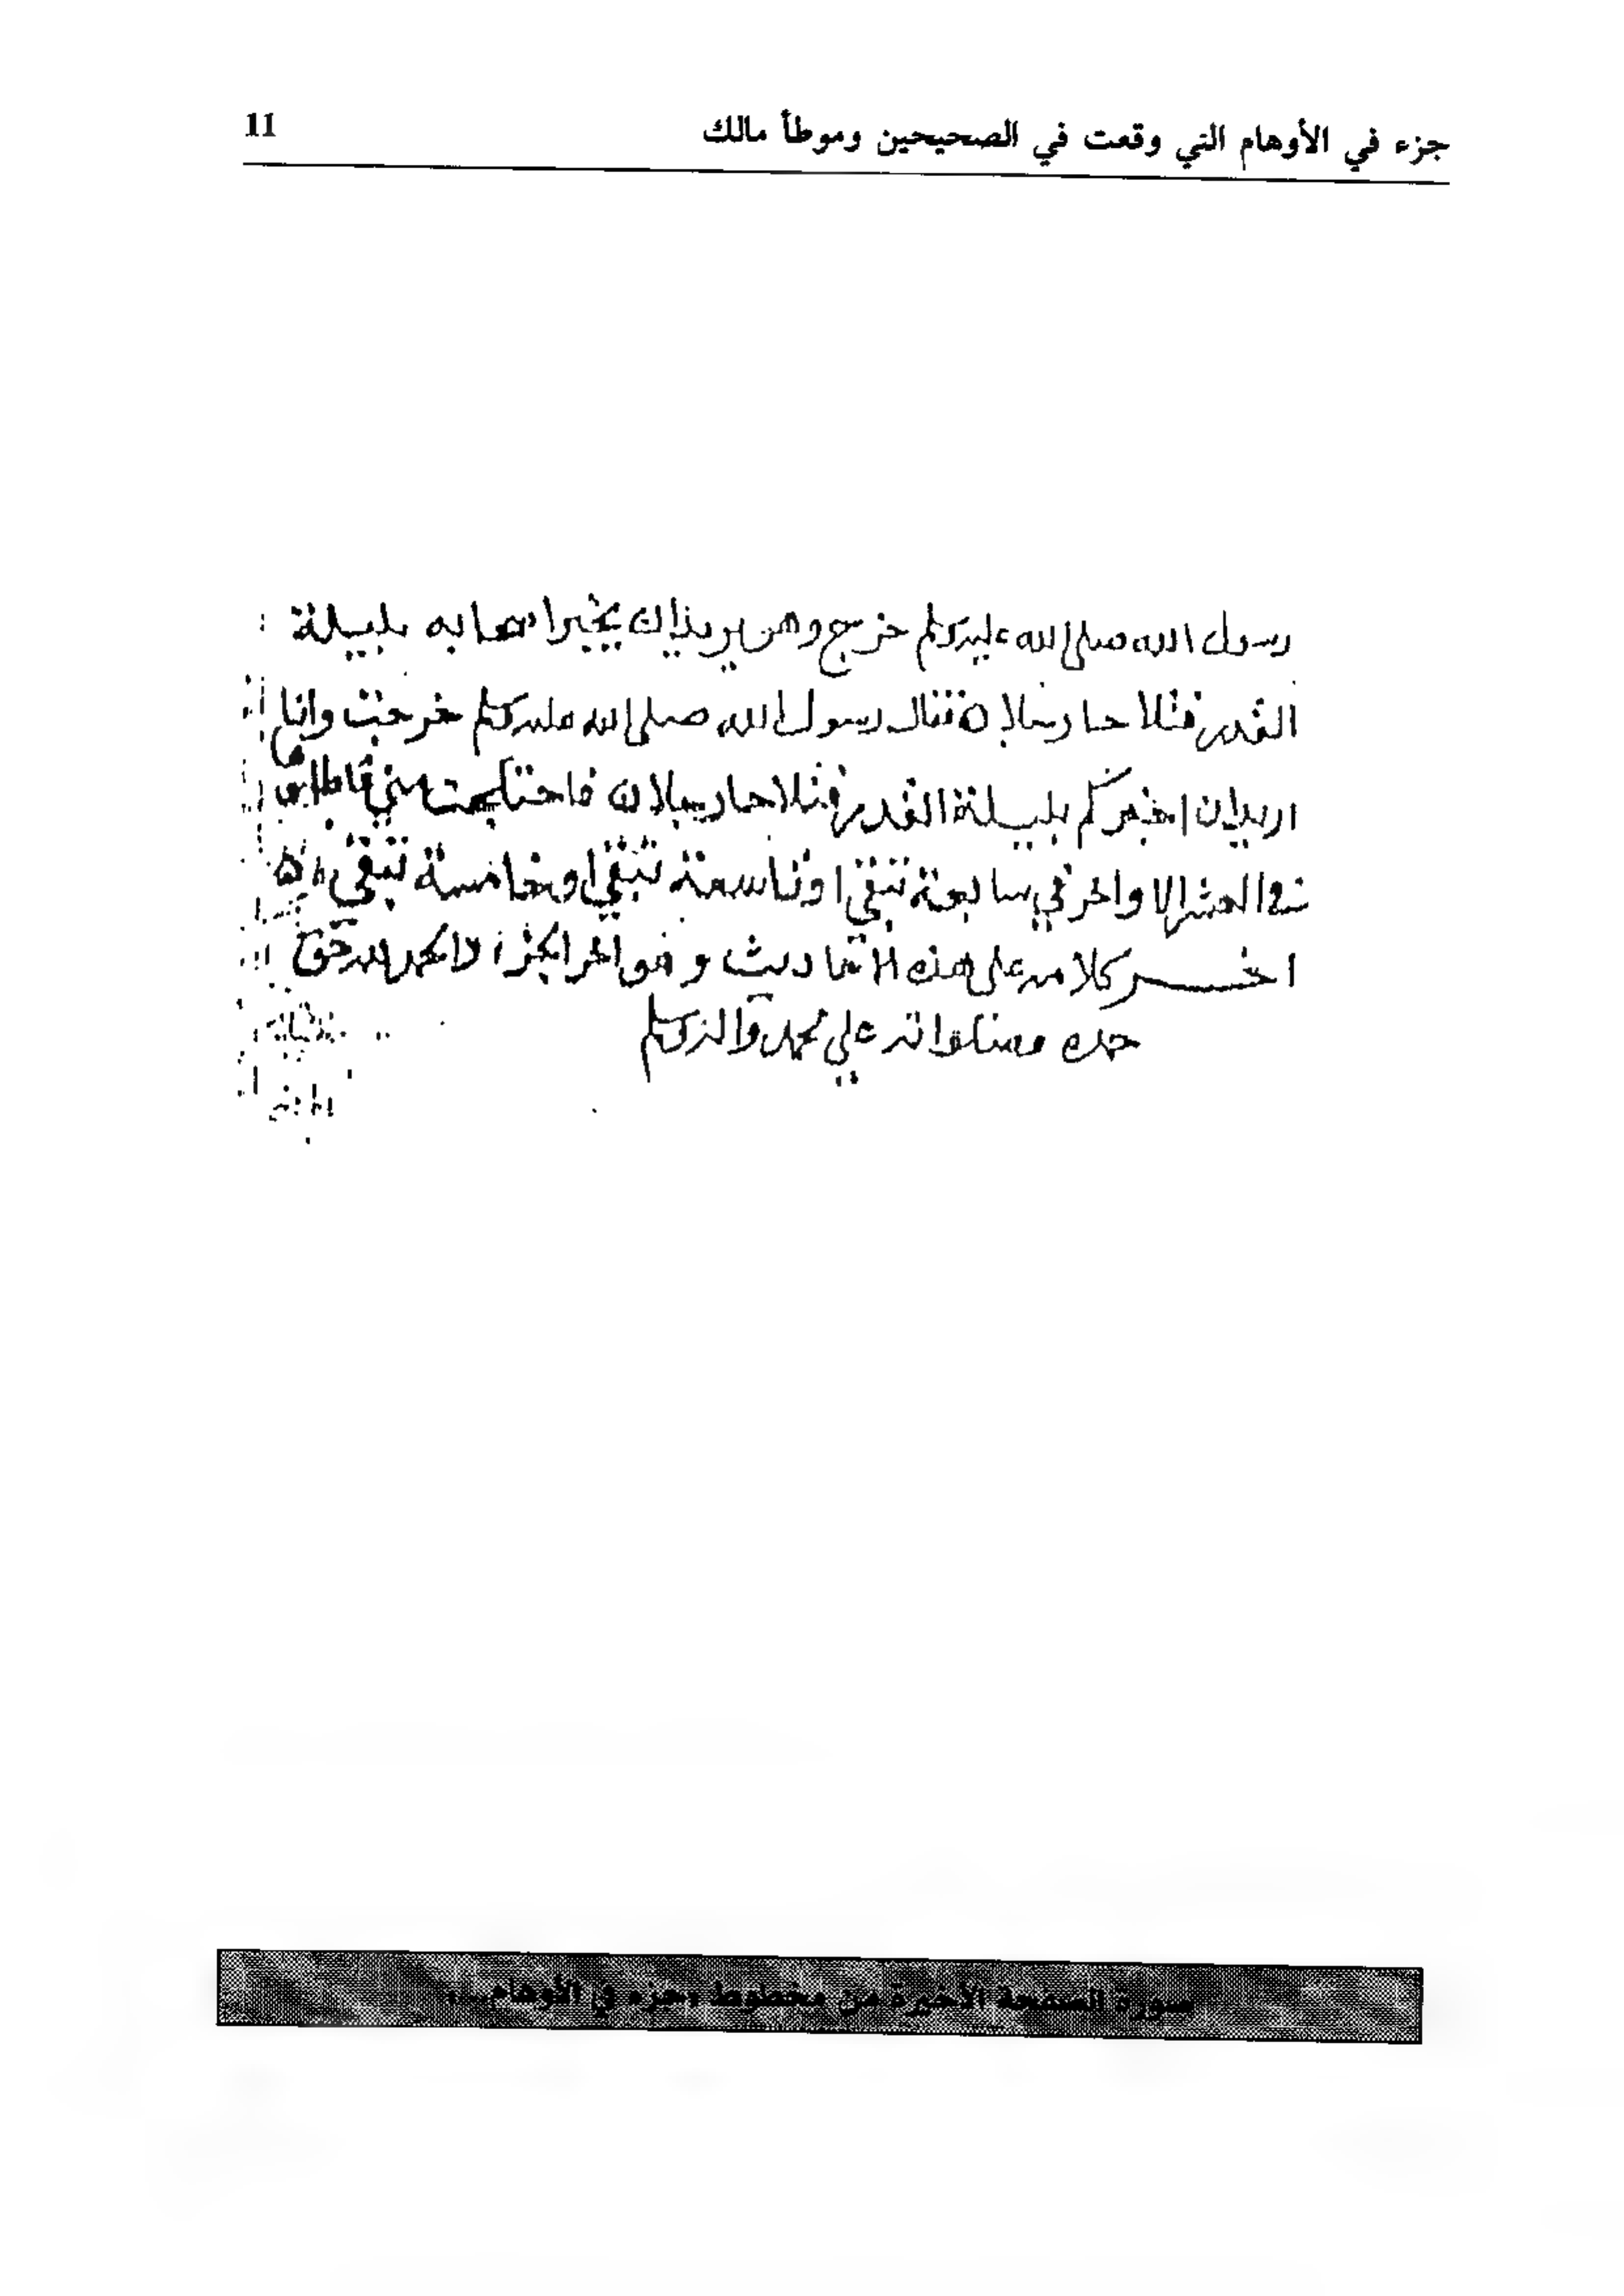 جزء في الأوهام التي وقعت في الصحيحين وموطأ مالك
11
رسول الله صلى الله عليه وسلم خرج وهو يريد ان يخبر اصحابه بليلة
القدر فتلاحا رجلان فقال رسول الله صلى الله عليه وسلم خرجت وانا
اريد ان اخبركم بليلة القدر فتلاحا رجلان فاختلجت مني فاطلبوها
في العشر الاواخر في سابعة تبقى او تاسعة تبقى او خامسة تبقى
اخر كلامه على هذه الاحاديث وهو اخر الجزء والحمد لله حق
حمده وصلواته على محمد واله وسلم
صورة الصفحة الأخيرة من مخطوط «جزء في الأوهام...»